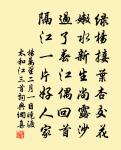 綠楊接葉杏交花
嫩水新生尚露沙
過了春江偶回首
隔江一片好人家
楊萬里二月一日曉渡
太和江三首詞典網